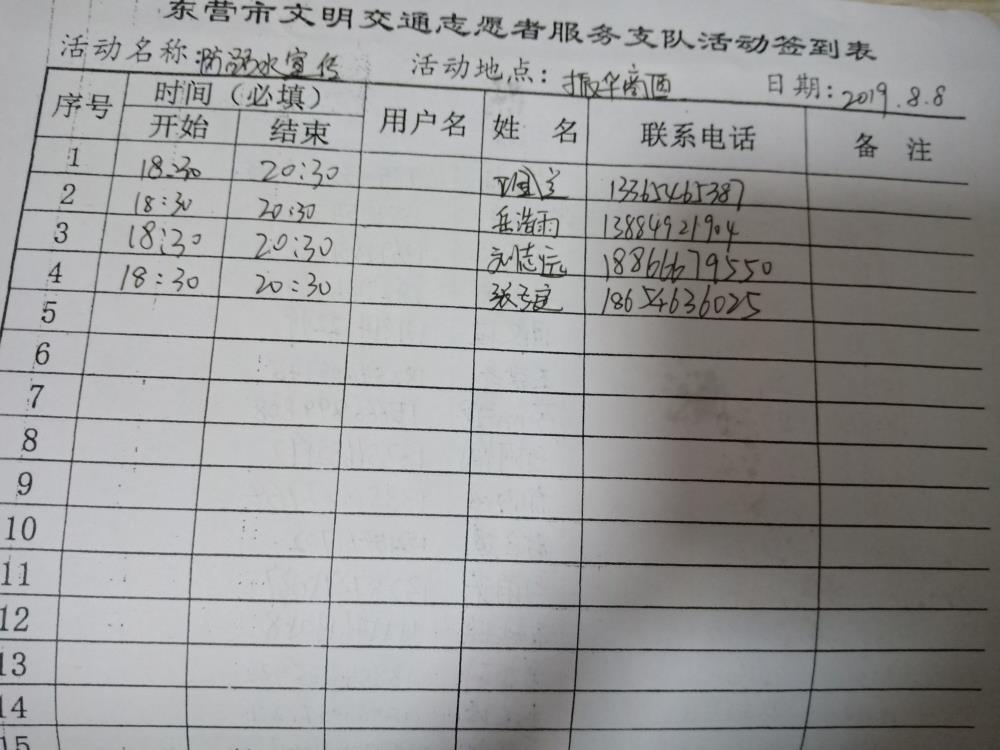 东营市文明交通志愿者服务支队活动签到表
活动名称:防溺水宣传 活动地点:振华商圈 日期:2019.8.8
序号 时间（必填） 用户名 姓 名 联系电话 备 注
开始 结束
1 18:30 20:30 13365465387
2 18:30 20:30 岳浩雨 13884921904
3 18:30 20:30 刘志远 18866679550
4 18:30 20:30 18654636025
5
6
7
8
9
10
11
12
13
14
15